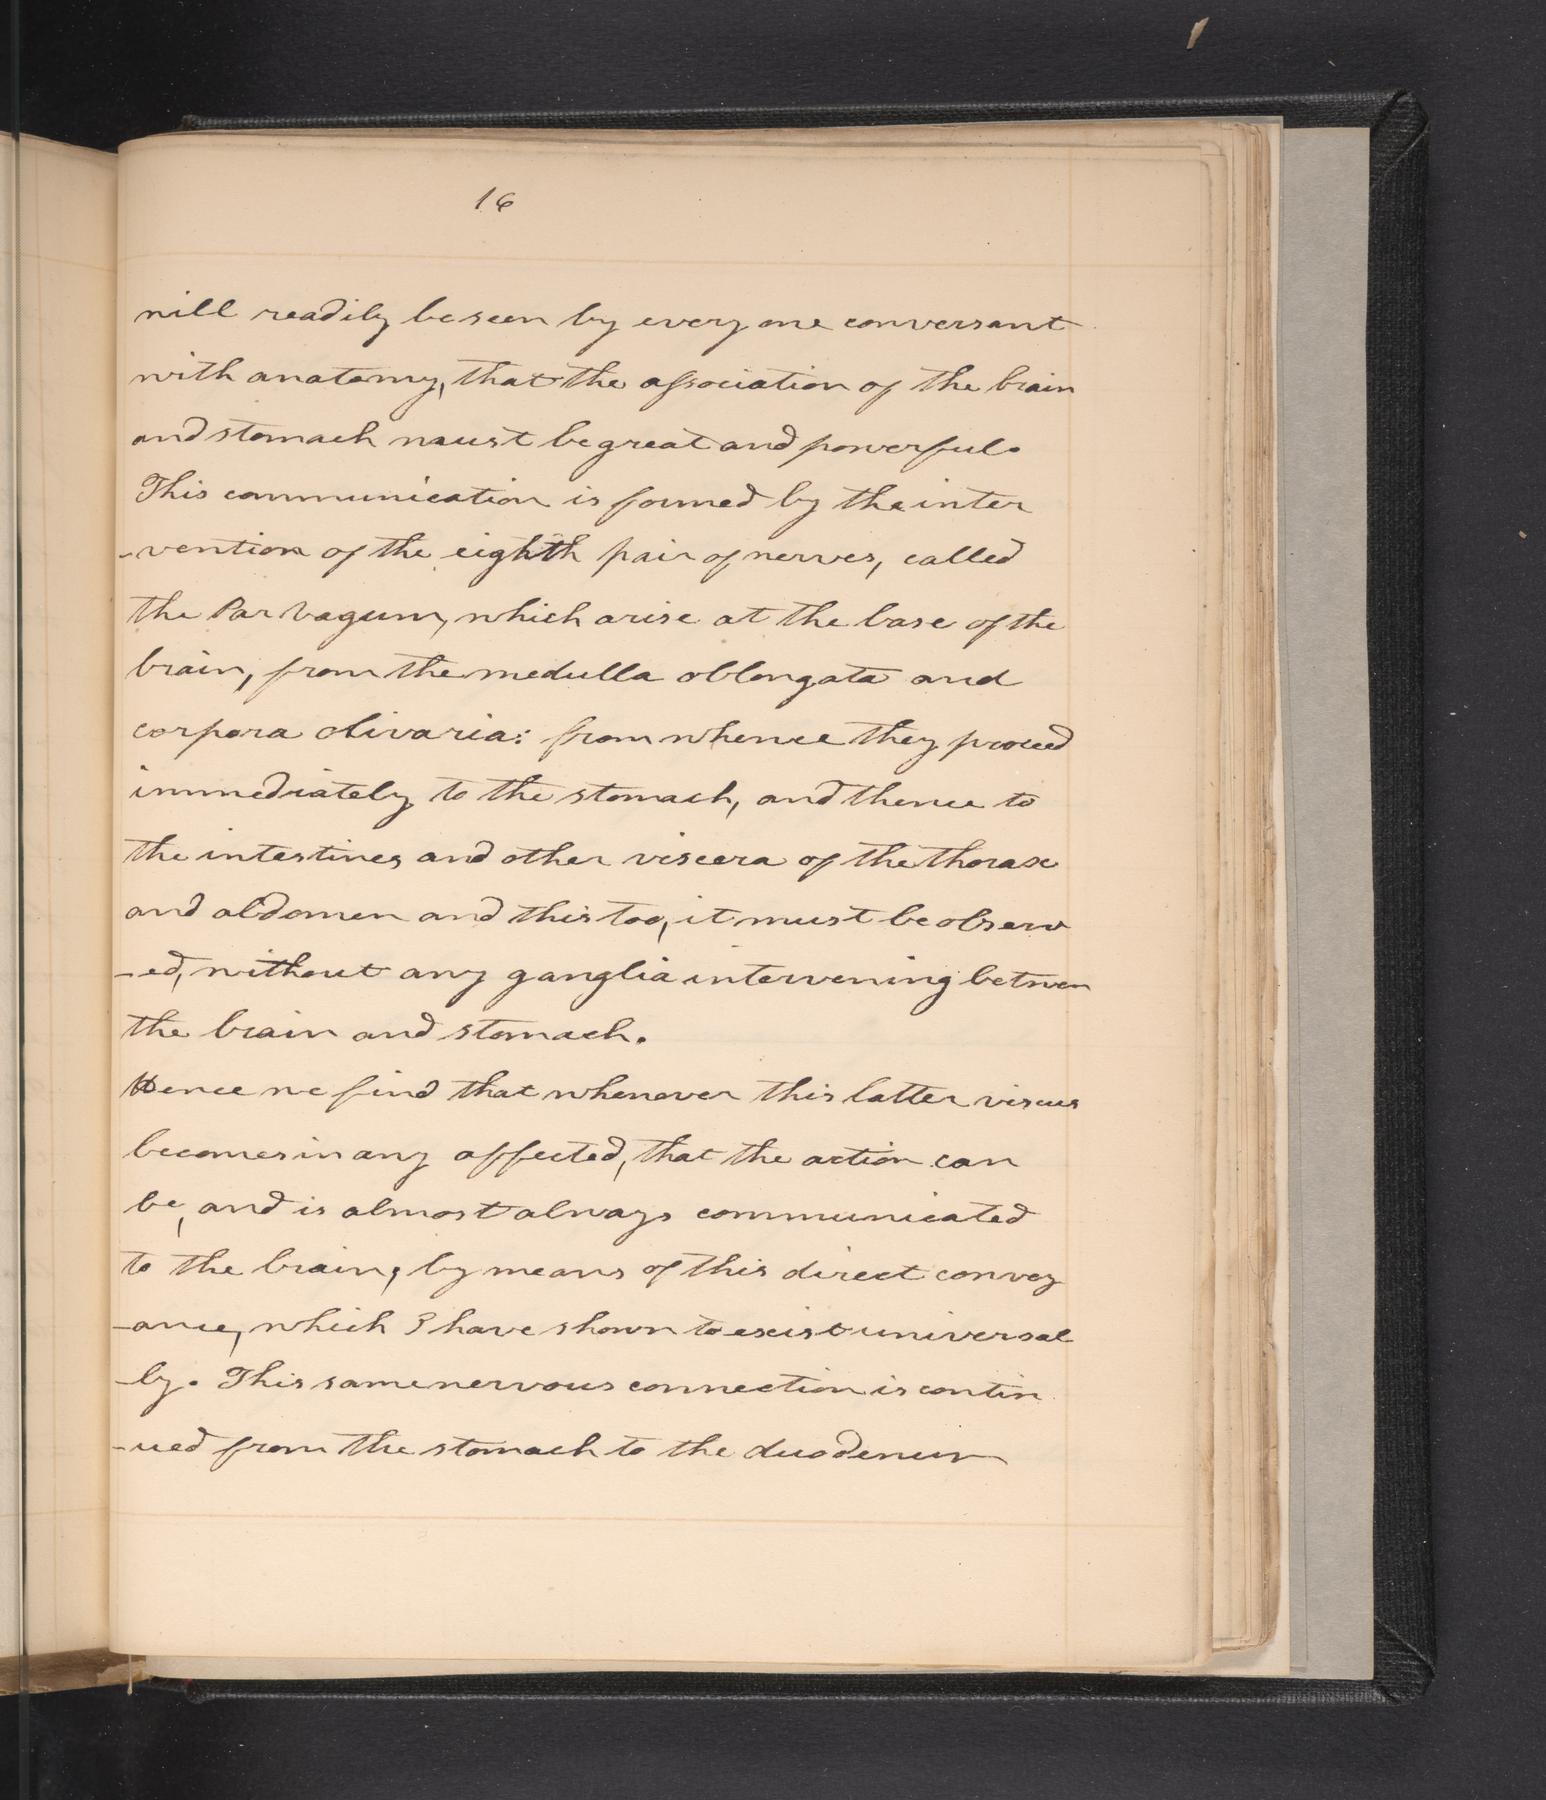 16
will readily be seen by every one conversant
with anatomy, that the association of the brain
and stomach must be great and powerful.
This communication is formed by the inter
-vention of the eighth pair of nerves, called
the Par Vagum, which arise at the base of the
brain, from the medulla oblongata and
corpora olivaria: from whence they proceed
immediately to the stomach, and thence to
the intestines and other viscera of the thorax
and abdomen and this too, it must be observ
-ed, without any ganglia intervening between
the brain and stomach.
Hence we find that whenever this latter viscus
becomes in any affected, that the action can
be, and is almost always communicated
to the brain, by means of this direct convey
-ance, which I have shown to exist universal
-ly. This same nervous connection is contin
-ued from the stomach to the duodenum